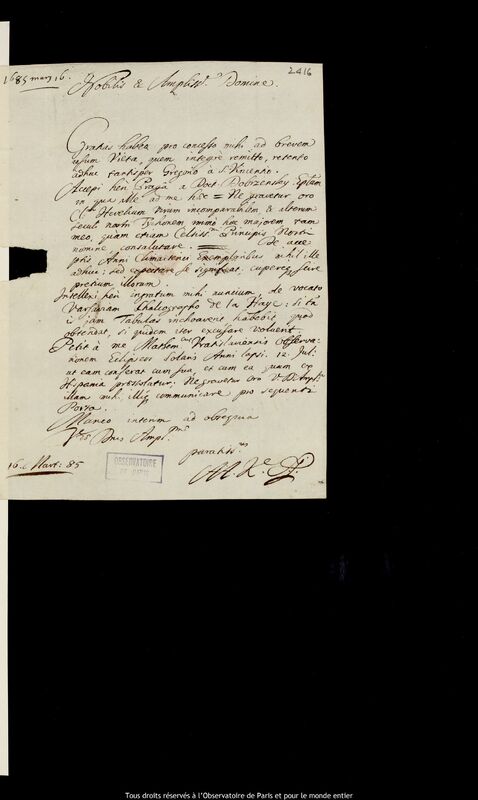 1685 mars 16.
2416
Nobilis & Ampliss.e Domine.
Gratias habeo pro concesso mihi ad brevem
usum Vieta, quem integrè remitto, retento
adhuc tantisper Gregorio à S. Vincentio.
Accepi heri Pragâ a Doct. Dobrzensky Eplam
in qua ille ad me hæc = Ne gravetur oro
Cl. Hevelium Virum incomparabilem, & alterum
seculi nostri Tychonem immo hoc majorem tam
meo, quam etiam Celsiss. Principis Nostri
nomine, consalutare. de acce
ptis Anni Climacterici Exemplaribus nihil ille
adhuc: sed expectare se significat. cupereq; scire
pretium illorum.
Intellexi heri ingratum mihi nuncium, de vocato
Varsaviam Chalcographo de la Haye; si tñ
is jam tabulas inchoaverit habebit quod
obtendat, si quidem iter excusare voluerit.
Petit à me Mathem.cus Vratislaviensis observa:
tionem Eclipseos Solaris Anni lapsi. 12. Jul:
ut eam conferat cum sua, et cum ea quam ex
Hispania præstolatur; Ne gravetur oro V.
illam mihi communicare pro sequenti
Posta.
Maneo interim ad obsequia
V.ræ Dnis Ampl.
paratiss.
16. Mart: 85
OBSERVATOIRE
DE PARIS
Tous droits réservés à l'Observatoire de Paris et pour le monde entier